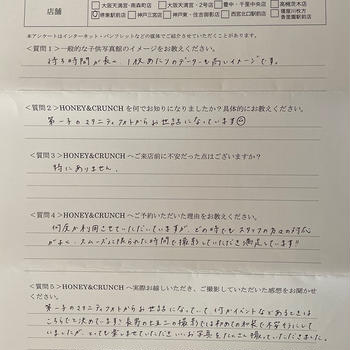 店舗
大阪天満宮・南森町店 □大阪天満宮・2号店 □豊中・千里中央店 □高槻茨木店
堺東駅前店 □神戸三宮店 □神戸東・住吉御影店 □西宮北口駅前店 □寝屋川枚方香里園駅前店
本アンケートはインターネット・パンフレットなどの媒体でご紹介させていただくことがあります。
＜質問１＞一般的な子供写真館のイメージをお教えください。
待ち時間が長い、1枚あたりのデータも高いイメージです。
＜質問２＞HONEY&CRUNCH を何でお知りになりましたか？具体的にお教えください。
第一子のマタニティフォトからお世話になっています
＜質問３＞HONEY&CRUNCH へご来店前に不安だった点はございますか？
特にありません。
＜質問４＞HONEY&CRUNCH へご予約いただいた理由をお教えください。
何度か利用させていただいていますが、どの時でもスタッフの方々の対応
がよく、スムーズに限られた時間で撮影していただき満足しています!!
＜質問５＞HONEY&CRUNCH へ実際お越しいただき、ご撮影していただいた感想をお聞かせ
ください。
第一子のマタニティフォトからお世話になっていて何かイベントなどあるときは
こちらでと決めています。長男の七五三の撮影では初めての和装で不安に
していましたが、とっても楽しませていただきいいお写真をたくさん撮っていただきました。